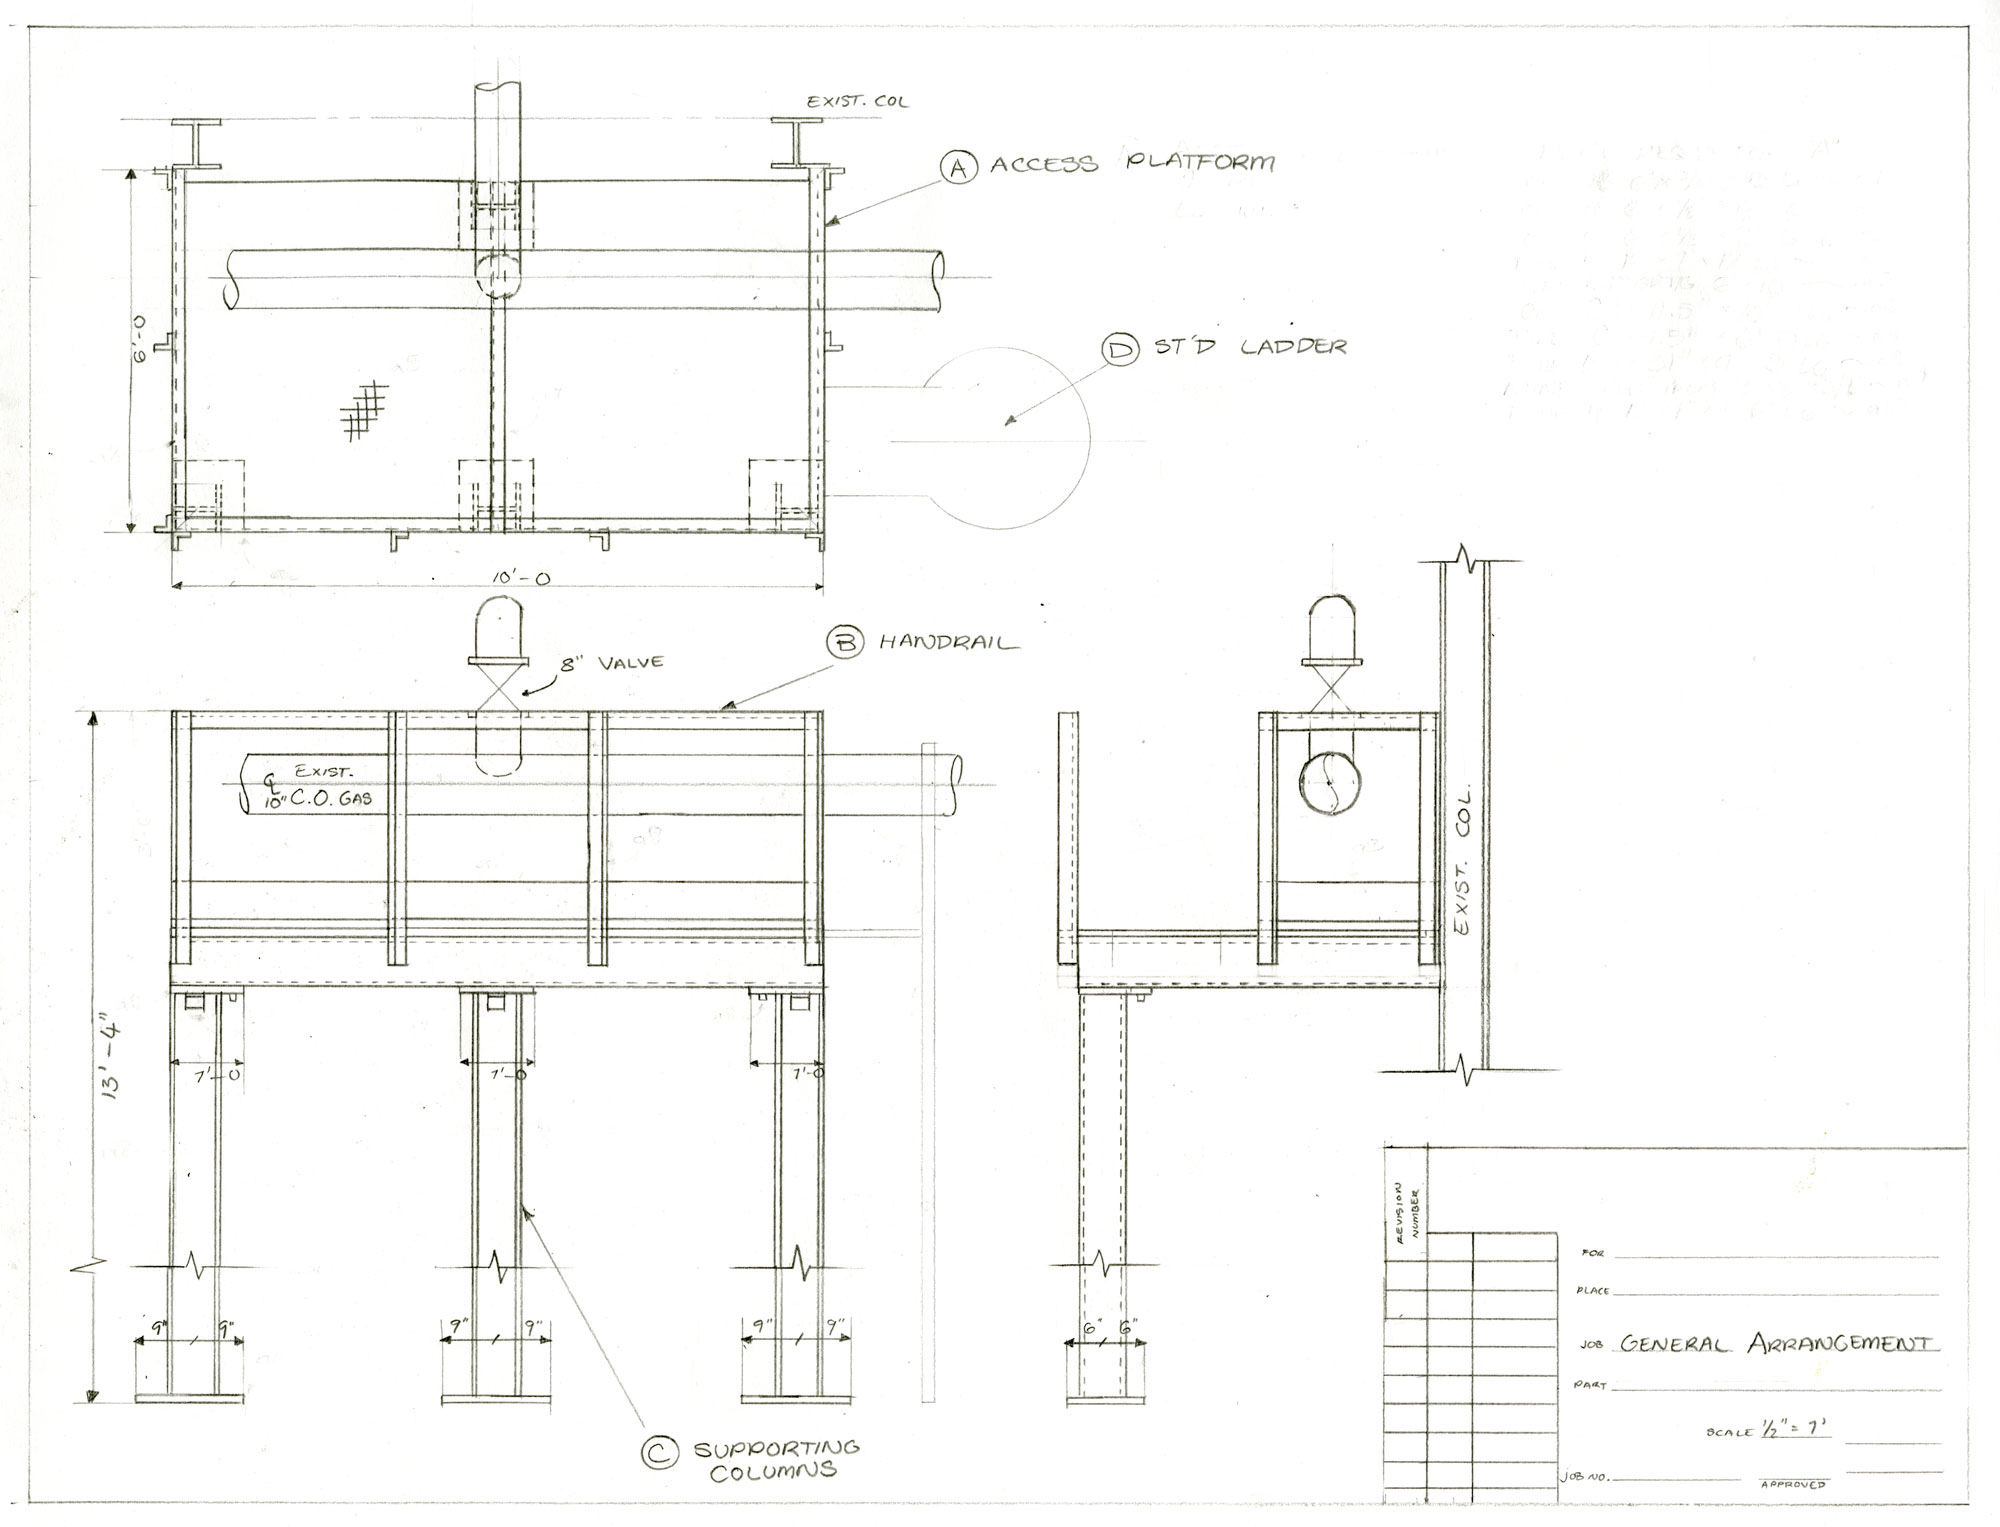 EXIST. COL
Ⓐ ACCESS PLATFORM
6'-0
Ⓓ ST'D LADDER
10'-0
Ⓑ HANDRAIL
8" VALVE
EXIST.
℄ 10" C.O. GAS
EXIST. COL.
13'-4"
1'-0
1'-0
1'-0
9" 9"
9" 9"
9" 9"
6" 6"
Ⓒ SUPPORTING
COLUMNS
REVISION
NUMBER
FOR
PLACE
JOB GENERAL ARRANGEMENT
PART
SCALE 1/2" = 1'
JOB NO.
APPROVED